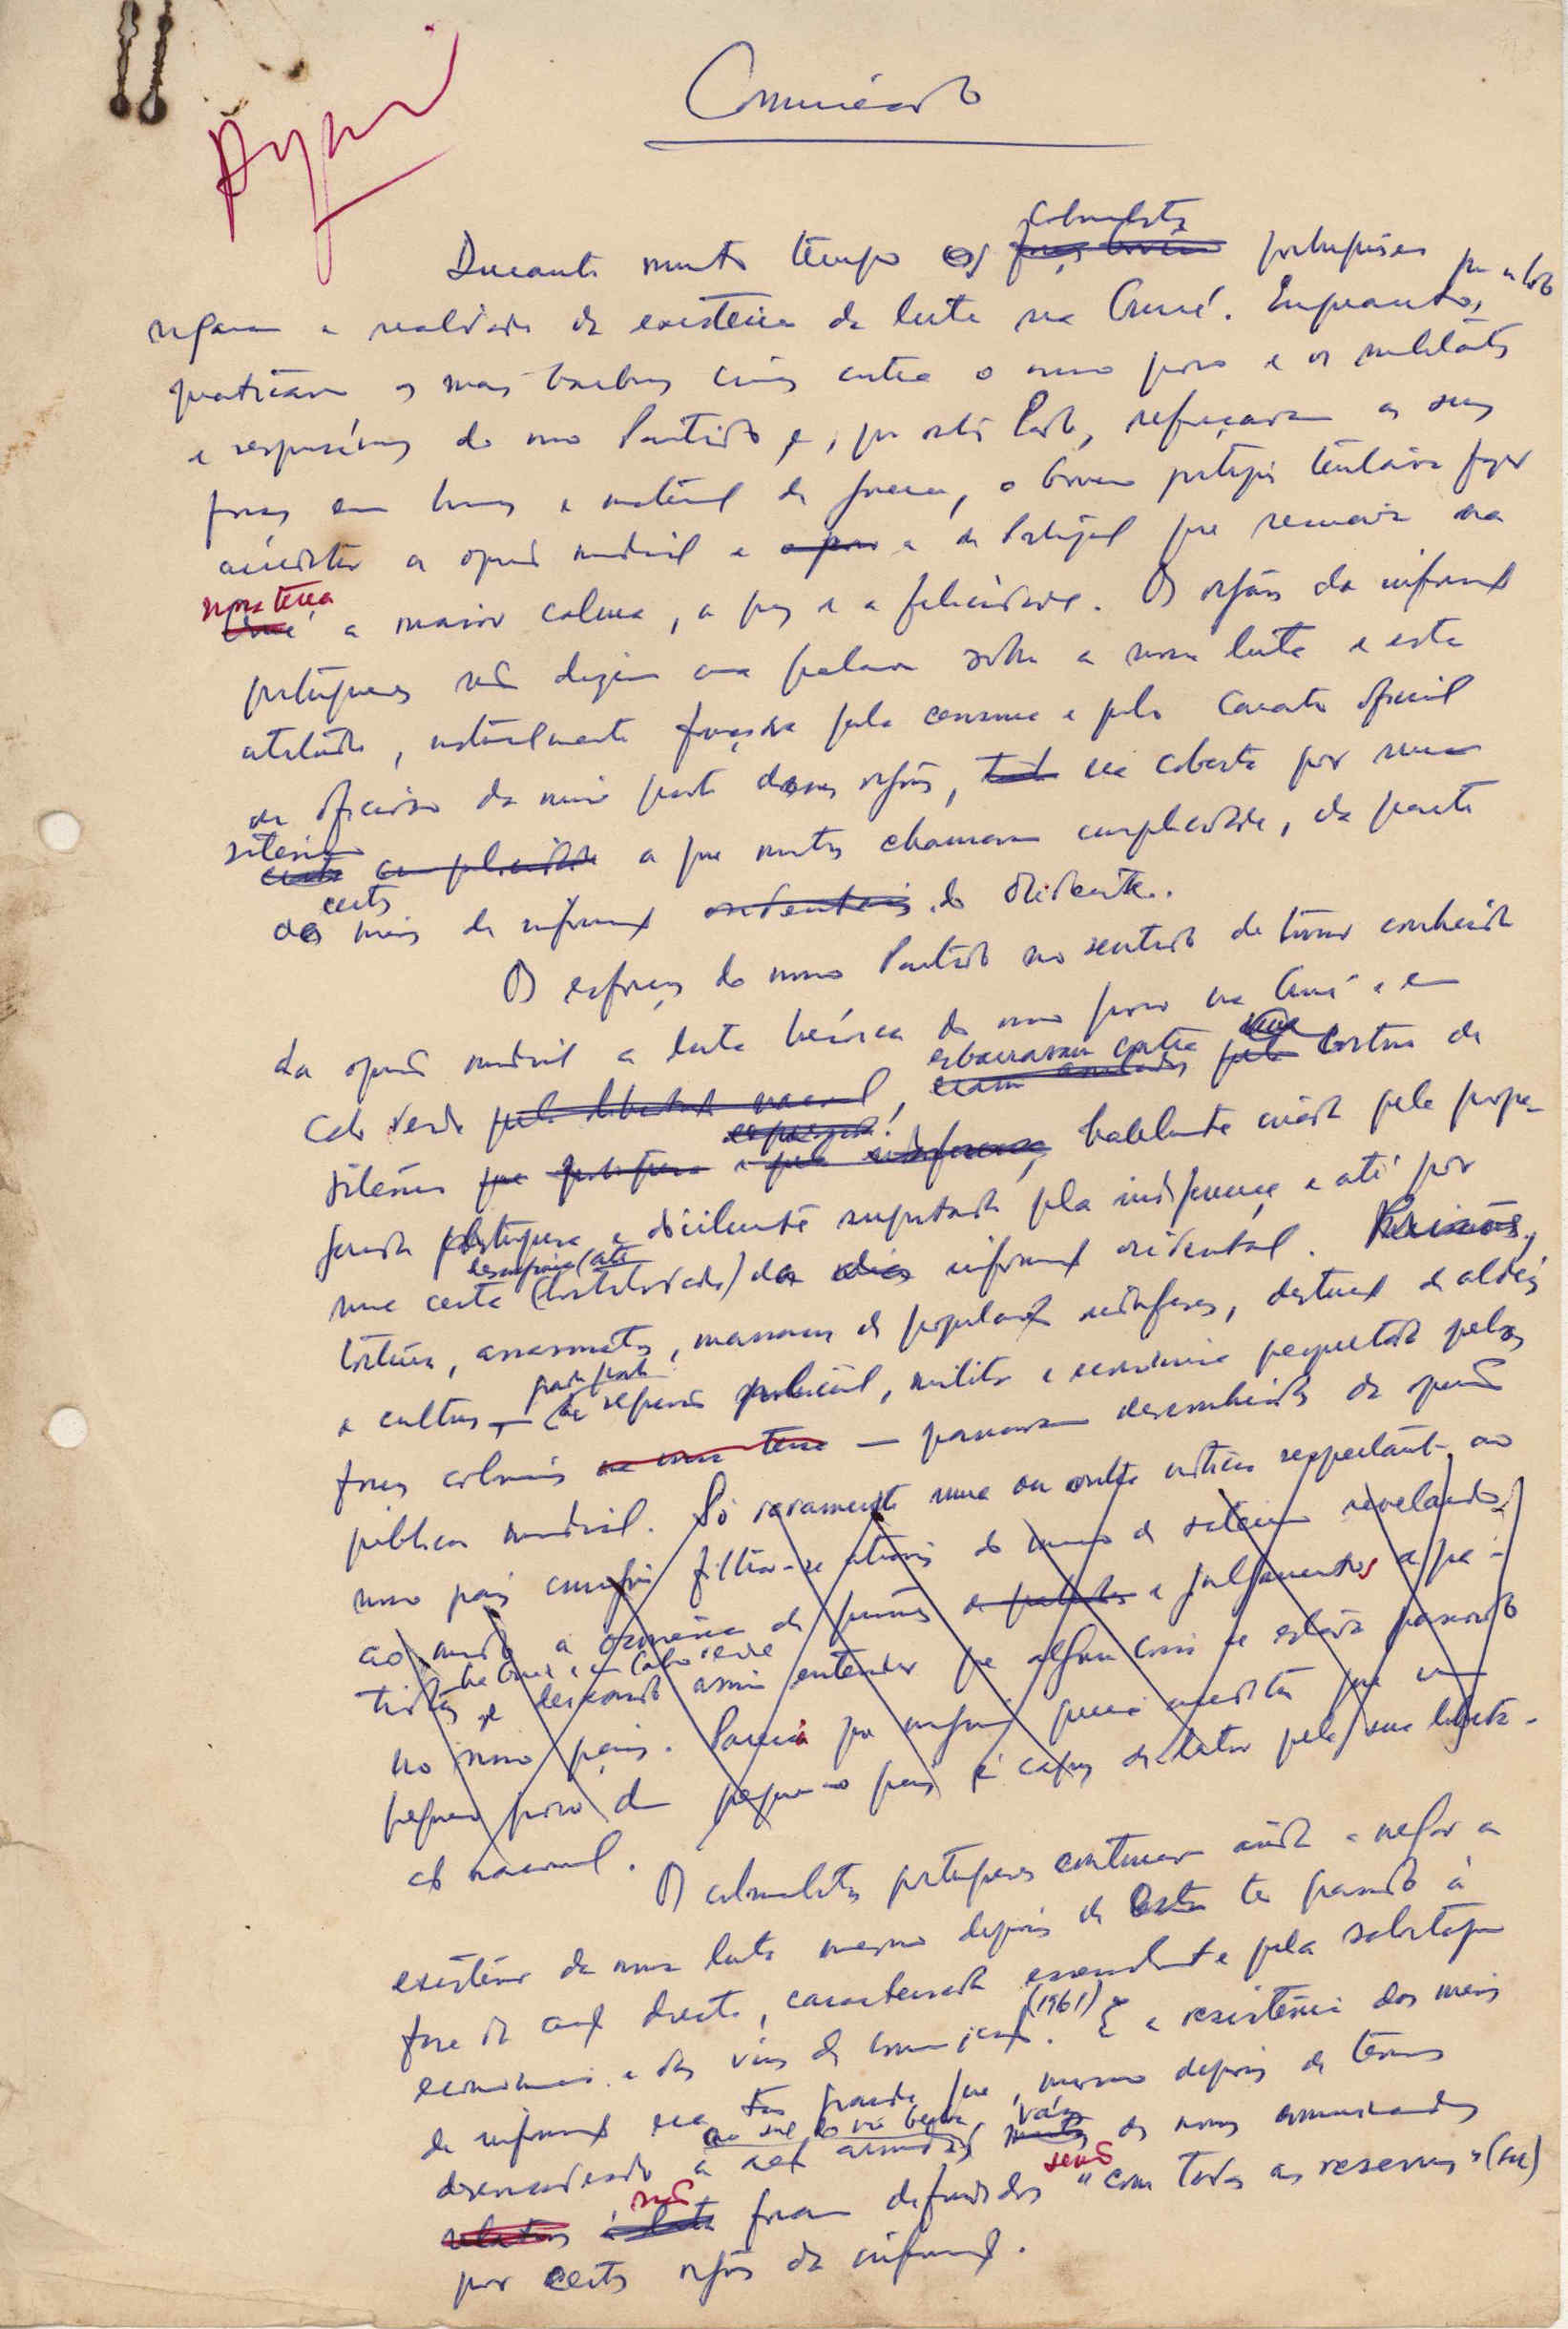 Comunicado
Durante muito tempo os colonialistas portugueses
negaram a realidade da existência da luta na Guiné. Enquanto, por um lado
praticavam os mais bárbaros crimes contra o nosso povo e os militantes
e responsáveis do nosso Partido e, por outro lado, reforçavam as suas
forças em homens e material de guerra, o Governo português tentava fazer
acreditar a opinião mundial e a de Portugal que reinava na
nossa terra a maior calma, a paz e a felicidade. Os orgãos da informação
portugueses não diziam uma palavra sobre a nossa luta e esta
atitude, naturalmente forçada pela censura e pelo caracter oficial
ou oficioso da maior parte desses orgãos, era coberta por um
silêncio a que muitos chamavam cumplicidade, da parte
de certos meios de informação do Ocidente.
Os esforços do nosso Partido no sentido de tornar conhecida
da opinião mundial a luta heróica do nosso povo na Guiné e em
Cabo Verde, esbarravam contra uma cortina de
silêncio habilmente criada pela propa-
ganda portuguesa e docilmente suportada pela indiferença e até por
uma certa desconfiança (até hostilidade) da informação ocidental. Prisões,
tortura, assassinatos, massacres de populações indefesas, destruição de aldeias
e culturas — grande parte da repressão policial, militar e económica perpetrada pelas
forças coloniais na nossa terra — passavam desconhecidos da opinião
pública mundial. Só raramente uma ou outra notícia respeitante ao
nosso país conseguia filtrar-se através do muro de silêncio revelando,
ao mundo a ocorrência de prisões e julgamentos de pa-
triotas na Guiné e em Cabo Verde e deixando assim entender que alguma coisa se estava passando
no nosso país. Parecia que ninguém queria acreditar que um
pequeno povo de um pequeno país é capaz de lutar pela sua liberta-
ção nacional.
Os colonialistas portugueses continuavam ainda a negar a
existência da nossa luta mesmo depois de esta ter passado à
fase da acção directa, caracterizada essencialmente pela sabotagem
económica e das vias de comunicação (1961). E a resistência dos meios
de informação era tão grande que, mesmo depois de termos
desencadeado a acção armada ao sul do rio Geba, vários dos nossos comunicados
não foram difundidos senão "com todas as reservas" (sic)
por certos orgãos da informação.